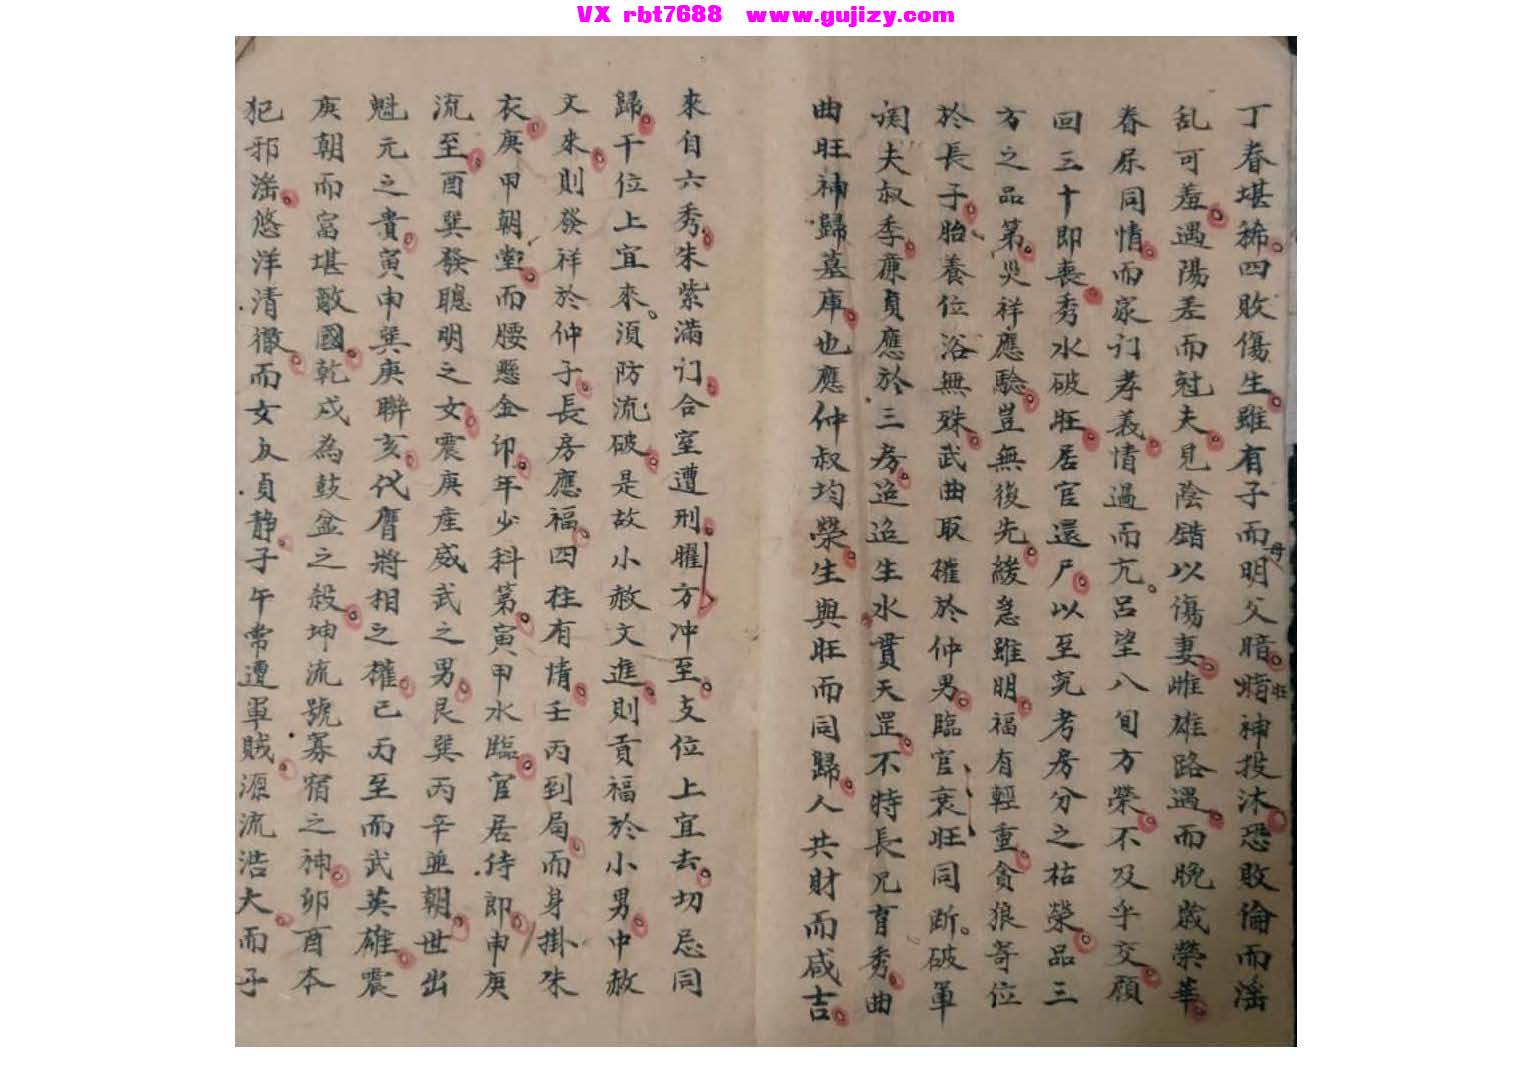 VX rbt7688 www.gujizy.com
丁春堪稀四敗傷生雖有子而明父暗暗神投沐恐敗倫而滛
母
旺
乱可羞遇陽差而尅夫見陰錯以傷妻雌雄路遇而晩歳榮華
春尿同情而家订孝義情過而亢吕望八旬方榮不及乎交顔
回三十即喪秀水破旺居官還尸以至究考房分之枯榮品三
方之品第災祥應驗豈無後先緩急雖明福有輕重貪狼寄位
於長子胎養位浴無殊武曲取權於仲男臨官衰旺同斷破軍
関夫叔季廉貞應於三房迨迨生水貫天罡不特長兄育秀曲
曲旺神歸墓庫也應仲叔均榮生與旺而同歸人共財而咸吉
來自六秀朱紫滿订合室遭刑曜方冲至支位上宜去切忌同
歸干位上宜來須防流破是故小赦文進則貢福於小男中赦
文來則發祥於仲子長房應福四柱有情壬丙到局而身掛朱
衣庚甲朝堂而腰懸金印年少科第寅甲水臨官居侍郎申庚
流至酉巽發聰明之女震庚産威武之男艮巽丙辛並朝世出
魁元之貴寅申巽庚聯亥代膺將相之權巳丙至而武英雄震
庚朝而富堪敵國乾戍為鼓盆之殺坤流號寡宿之神卯酉本
犯邪滛悠洋清徹而女反貞静子午常遭軍賊源流浩大而子